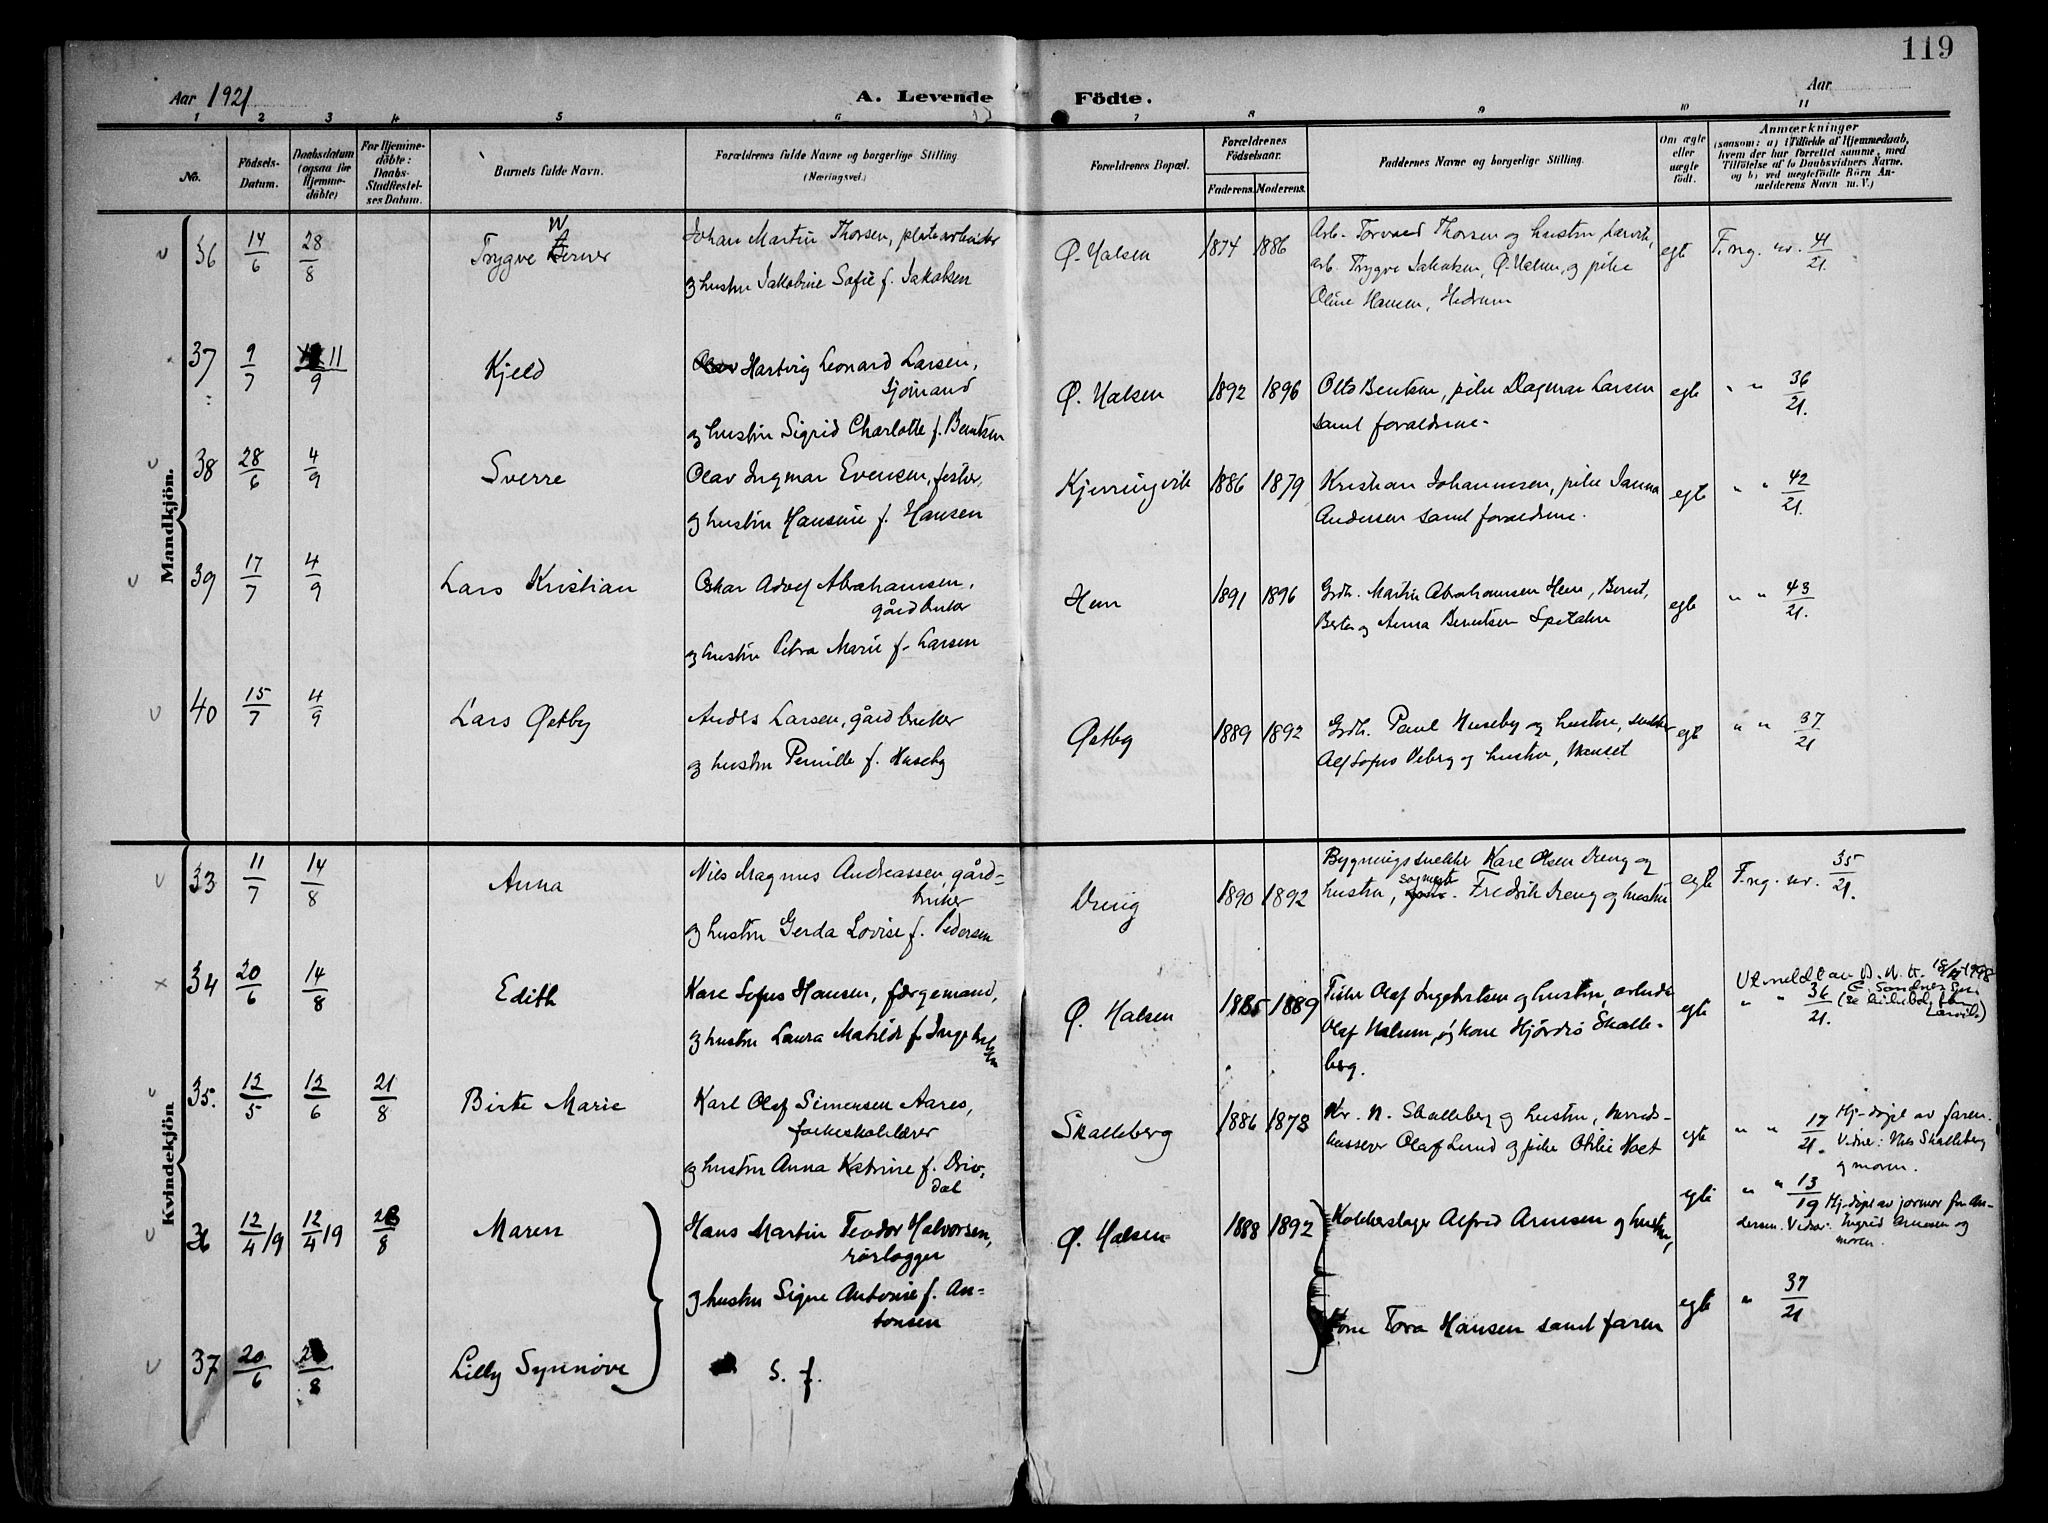 119
Aar 1921
A. Levende Födte.
Aar
1 2 3 4 5 6 7 8 9 10 11
No.
Födsels-
Datum.
Daabsdatum
(ogsaa for
Hjemme-
döbte)
For Hjemme-
döbte:
Daabs-
Stadfæstel-
ses Datum.
Barnets fulde Navn.
Forældrenes fulde Navne og borgerlige Stilling
(Næringsvei.)
Forældrenes Bopæl.
Forældrenes
Födselsaar.
Faderens. Moderens.
Faddernes Navne og borgerlige Stilling.
Om ægte
eller
uægte
födt.
Anmærkninger
(saasom: a) i Tilfælde af Hjemmedaab,
hvem der har forrettet samme, med
Tilföielse af to Daabsvidners Navne,
og b) ved uægtefödte Börn An-
melderens Navn m. V.)
Mandkjön.
36 14/6 28/8 Trygve Werner
Johan Martin Thorsen, platearbeider
og hustru Jakobine Sofie f. Jakobsen
Ø. Halsen 1874 1886
Arb. Torvald Thorsen og hustru, Larvik,
arb. Trygve Jakobsen, Ø. Halsen, og pike
Oline Hansen, Hedrum
egt F.ng. nr. 41/21.
37 9/7 11/9 Kjeld
Hartvig Leonard Larsen,
sjømand
og hustru Sigrid Charlotte f. Bentsen
Ø. Halsen 1892 1896
Otto Bentsen, pike Dagmar Larsen
samt forældrene.
egte " " 36/21.
38 28/6 4/9 Sverre
Olav Ingmar Evensen, fisker,
og hustru Hansine f. Hansen
Kjerringvik 1886 1879
Kristian Johannesen, pike Janna
Andersen samt forældrene.
egte " " 42/21.
39 17/7 4/9 Lars Kristian
Oskar Adolf Abrahamsen,
gårdbruker
og hustru Petra Marie f. Larsen
Hem 1891 1896
Grdb. Martin Abrahamsen Hem, Bernt,
Berta og Anna Berntsen
egte " " 43/21.
40 15/7 4/9 Lars Østby
Anders Larsen, gårdbruker
og hustru Pernille f. Huseby
Østby 1889 1892
Grdb. Paul Huseby og hustru, snekker
Alf Sofus Veberg og hustru, Nanset
egt " " 37/21
Kvindekjön
33 11/7 14/8 Anna
Nils Magnus Andreassen, gård-
bruker
og hustru Gerda Lovise f. Pedersen
Dreng 1890 1892
Bygningssnekker Karl Olsen Dreng og
hustru, Fredrik Dreng og hustru
egte F.ng. nr. 35/21.
34 20/6 14/8 Edith
Karl Sofus Hansen, færgemand,
og hustru Laura Matilde f. Ingebretsen
Ø. Halsen 1885 1889
Fisker Olaf Ingebretsen og hustru, arbeider
Olaf Halum, og kone Hjørdis Skalle-
berg.
egte " " 36/21.
Utmeldt av D. N. K.
35. 12/5 12/6 21/8 Birte Marie
Karl Olaf Simensen Aares,
folkeskolelærer
og hustru Anna Katrine f. Driv-
dal
Skalleberg 1886 1878
Kr. N. Skalleberg og hustru, herreds-
kasserer Olaf Lund og pike Otilie Holt
egte " " 17/21. Hj-døpt av faren.
Vidner: Nils Skalleberg
og moren.
36 12/4 19 12/4 19 28/8 Maren
Hans Martin Teodor Halvorsen,
rørlægger
og hustru Signe Antonie f. An-
tonsen
Ø. Halsen 1888 1892
Kobberslager Alfred Arnesen og hustru,
egte " " 13/19 Hj-døpt av jormor fru An-
dersen. Vidner: Ingrid Arnesen og
moren.
37 20/6 28/8 Lilly Synnøve
S. f.
Kone Tora Hansen samt faren
egte " 37/21